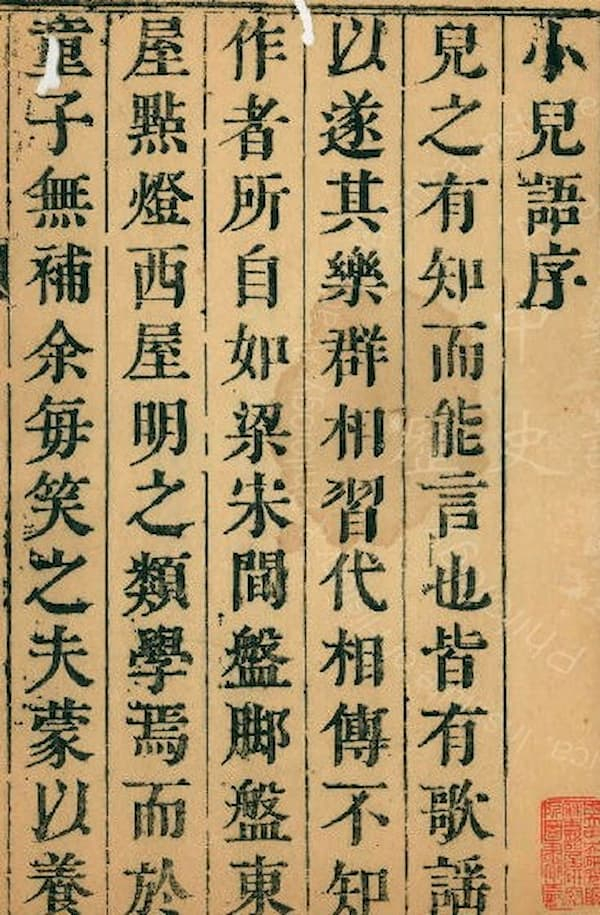 小兒語序
兒之有知而能言也皆有歌謡
以遂其樂群相習代相傳不知
作者所自如梁宋間盤脚盤東
屋點燈西屋明之類學焉而於
童子無補余每笑之夫蒙以養